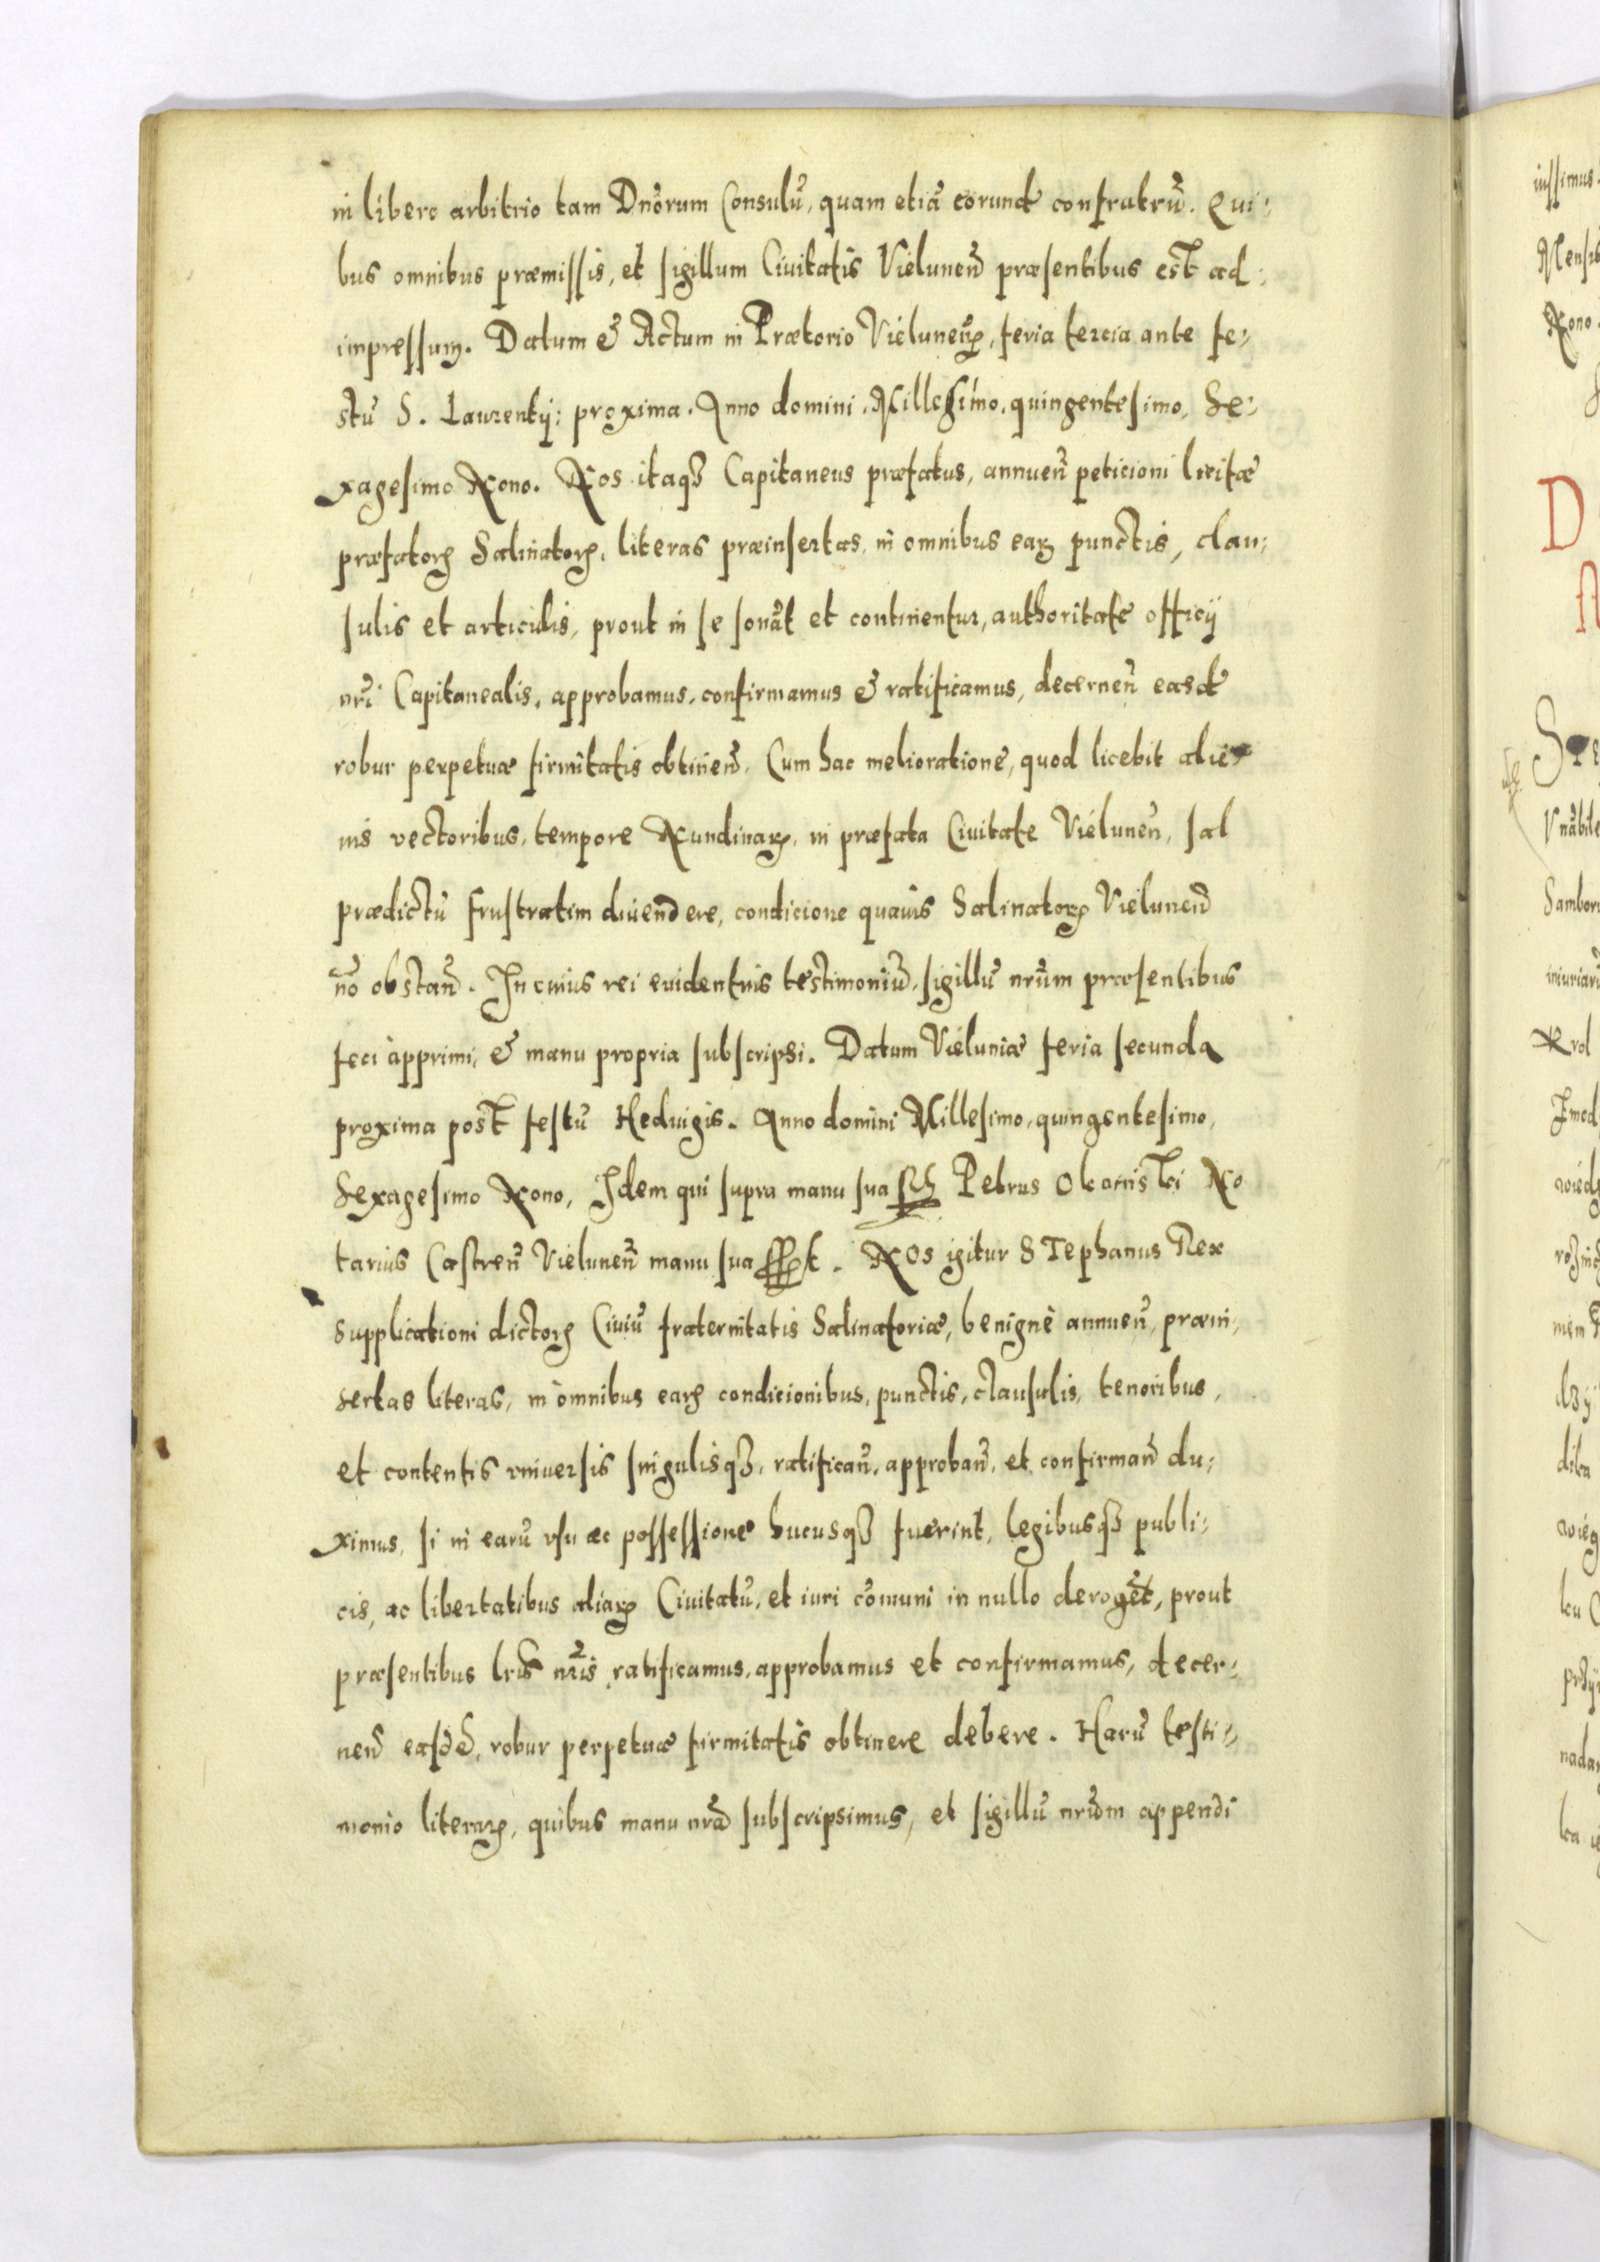 in libero arbitrio tam Dnorum Consulū, quam etiā eorund confratrū. Qui-
bus omnibus præmissis, et sigillum Ciuitatis Vielunen̄ præsentibus est ad-
impressum. Datum & Actum in Prætorio Vielunen̄, feria tercia ante fe-
stū S. Laurentij: proxima. Anno domini Millesimo, quingentesimo, Se-
xagesimo Nono. Nos itaqꝫ Capitaneus præfatus, annuen̄ peticioni licitæ
præfatorꝝ Salinatorꝝ, literas præinsertas, in omnibus earꝝ punctis, clau-
sulis et articulis, prout in se sonāt et continentur, authoritate officij
nr̄i Capitanealis, approbamus, confirmamus & ratificamus, decernen̄ easd
robur perpetuæ firmitatis obtinen̄. Cum hac melioratione, quod licebit alie-
nis vectoribus, tempore Nundinarꝝ, in præfata Ciuitate Vielunen̄, sal
prædictū frustratim diuendere, condicione quauis Salinatorꝝ Vielunen̄
nō obstan̄. In cuius rei euidentius testimoniū, sigillū nr̄um præsentibus
feci apprimi, & manu propria subscripsi. Datum Vieluniæ feria secunda
proxima post festū Heduigis. Anno domini Millesimo, quingentesimo,
Sexagesimo Nono, Idem qui supra manu sua Petrus No
tarius Castren̄ Vielunen̄ manu sua. Nos igitur Stephanus Rex
supplicationi dictorꝝ Ciuiū fraternitatis Salinatoriæ, benignè annuen̄, præin-
sertas literas, in omnibus earꝝ condicionibus, punctis, clausulis, tenoribus,
et contentis vniuersis singulisqꝫ, ratifican̄, approban̄, et confirman̄ du-
ximus, si in earū vsu ac possessione hucusqꝫ fuerint, legibusqꝫ publi-
cis, ac libertatibus aliarꝝ Ciuitatū, et iuri cōmuni in nullo derogēt, prout
præsentibus lr̄is nr̄is ratificamus, approbamus et confirmamus, decer-
nen̄ easdē, robur perpetuæ firmitatis obtinere debere. Harū testi-
monio literarꝝ, quibus manu nr̄a subscripsimus, et sigillū nr̄um appendi